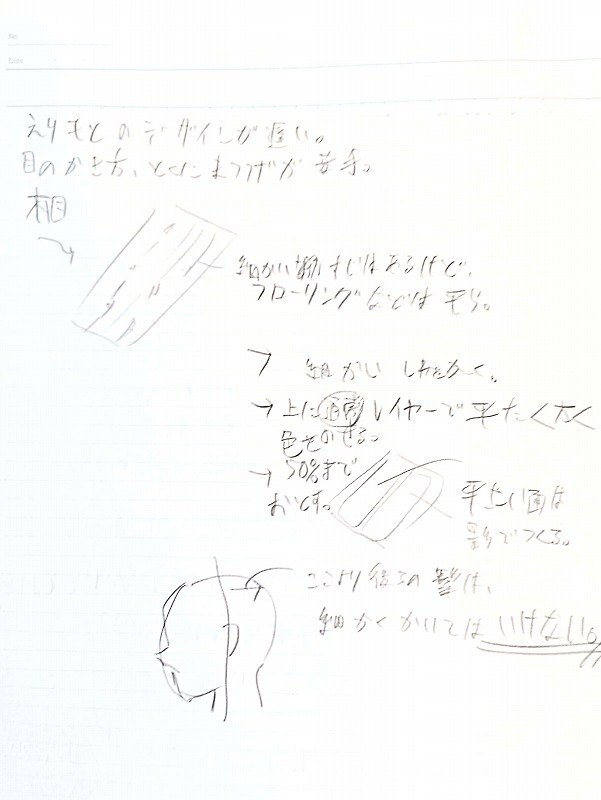 No.
Date
えりもとのデザインが遅い。
目のかき方、とくにまつげが苦手。
木目
細かいすじはあるけど、
フローリングなどは平ら。
細かいしわをかく。
→ 上に通常レイヤーで平たく太く
色をのせる。
→ 50%まで
おとす。
平たい面は
影でつくる。
ここより後ろの髪は、
細かくかいてはいけない。